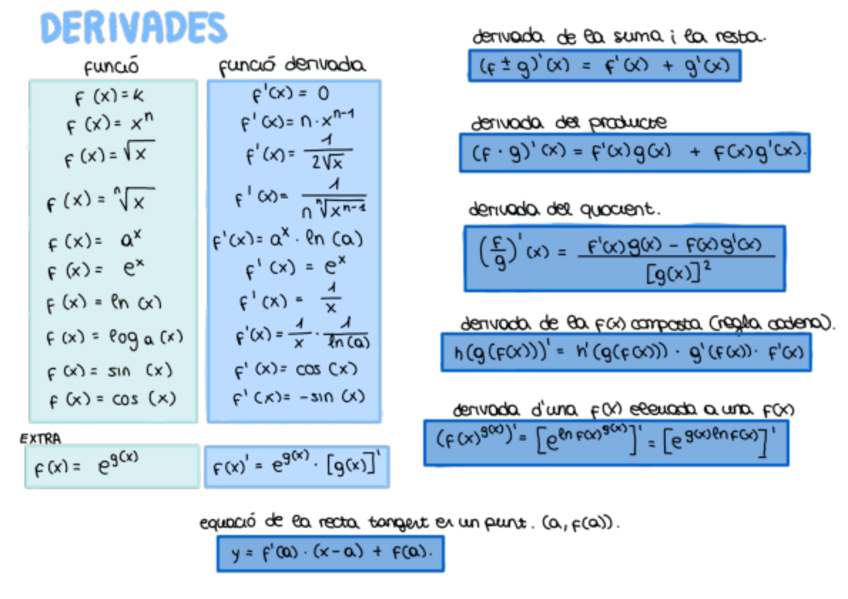 DERIVADES
funció funció derivada
f(x) = k f'(x) = 0
f(x) = xⁿ f'(x) = n · xⁿ⁻¹
f(x) = √x f'(x) = 1/(2√x)
f(x) = ⁿ√x f'(x) = 1/(n ⁿ√(xⁿ⁻¹))
f(x) = aˣ f'(x) = aˣ · ln(a)
f(x) = eˣ f'(x) = eˣ
f(x) = ln(x) f'(x) = 1/x
f(x) = log a (x) f'(x) = 1/x · 1/ln(a)
f(x) = sin (x) f'(x) = cos (x)
f(x) = cos (x) f'(x) = -sin (x)
EXTRA
f(x) = e^g(x) f(x)' = e^g(x) · [g(x)]'
derivada de la suma i la resta.
(f ± g)'(x) = f'(x) + g'(x)
derivada del producte
(f · g)'(x) = f'(x)g(x) + f(x)g'(x).
derivada del quocient.
(f/g)'(x) = (f'(x)g(x) - f(x)g'(x))/[g(x)]²
derivada de la f(x) composta (regla cadena).
h(g(f(x)))' = h'(g(f(x))) · g'(f(x)) · f'(x)
derivada d'una f(x) elevada a una f(x)
(f(x)^g(x))' = [e^(ln f(x)^g(x))]' = [e^(g(x) ln f(x))]'
equació de la recta tangent en un punt. (a, f(a)).
y = f'(a) · (x-a) + f(a).